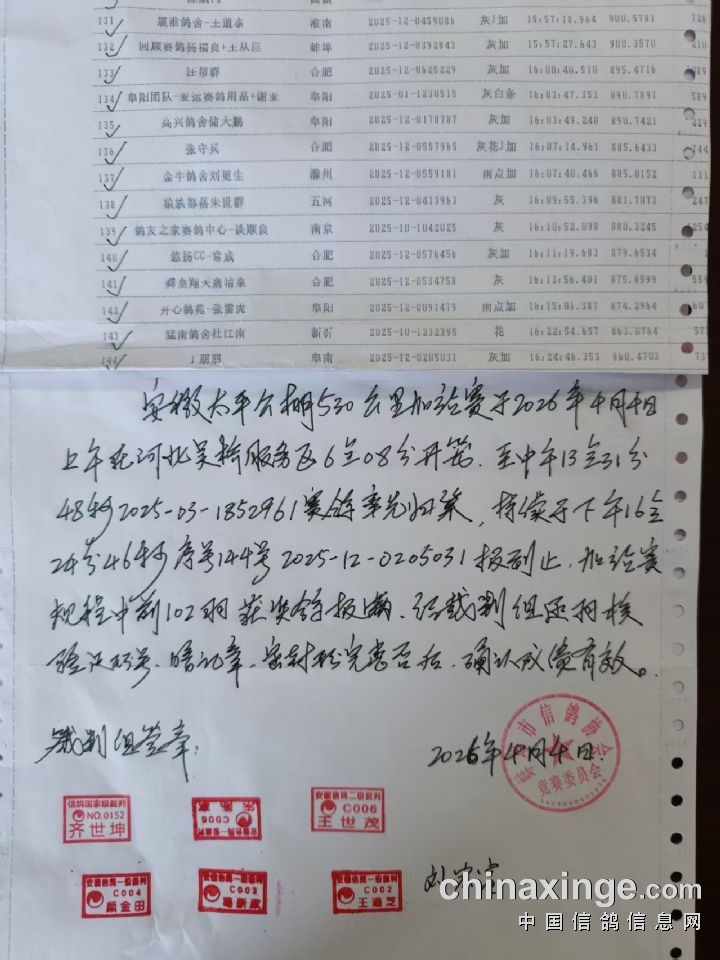 131 淮南 2025-12-0459086 灰J加 15:57:18.964 900.5781 126
132 回顾赛鸽杨福良+王从臣 蚌埠 2025-12-0392843 灰加 15:57:27.643 900.3570 210
133 汪帮群 合肥 2025-12-0625229 灰加 16:00:40.510 895.4716
134 阜阳团队-亚运赛鸽用品+谢亚 阜阳 2025-01-1230515 灰白条 16:03:47.353 890.7891 589
135 高兴鸽舍储大鹏 阜阳 2025-12-0178787 灰加 16:03:49.240 890.7421 229
136 张守兵 合肥 2025-12-0557965 灰花J加 16:07:14.961 885.6433 744
137 金牛鸽舍刘更生 滁州 2025-12-0559181 雨点加 16:07:40.466 885.0152 131
138 五河 2025-12-0433963 灰 16:09:55.396 881.7073 247
139 鸽友之家赛鸽中心-谈顺良 南京 2025-10-1042025 灰 16:10:52.098 880.3245 254
140 合肥 2025-12-0576456 灰加 16:11:19.683 879.6534
141 舜皇翔天唐清泉 合肥 2025-12-0534758 灰 16:13:56.401 875.8599 559
142 开心鸽苑-张雷虎 阜阳 2025-12-0091479 雨点加 16:15:01.387 874.2964
143 猛南鸽舍杜江南 新沂 2025-10-1232395 花 16:22:54.657 863.0764 57
144 丁朋朋 阜南 2025-12-0205031 灰加 16:24:46.353 860.4703 737
安徽太平公棚530公里加站赛于2026年4月4日
上午在河北吴桥服务区6全08分开笼. 至中午13全31分
48秒2025-03-1852961赛鸽率先归巢, 持续于下午16全
24分46秒序号144号2025-12-0205031报到止. 加站赛
规程中前102羽获奖鸽报满. 经裁判组逐羽核
验足环号. 暗记章. 密封扣完整否后. 确认成绩有效。
裁判组签章:
2026年4月4日.
市信鸽协会
竞赛委员会
信鸽国家级裁判
NO.0152
齐世坤
C006
安徽信鸽二级裁判
C006
王世茂
安徽信鸽一级裁判
C004
顾金田
安徽信鸽一级裁判
C003
安徽信鸽一级裁判
C002
chinaxinge.com
中国信鸽信息网